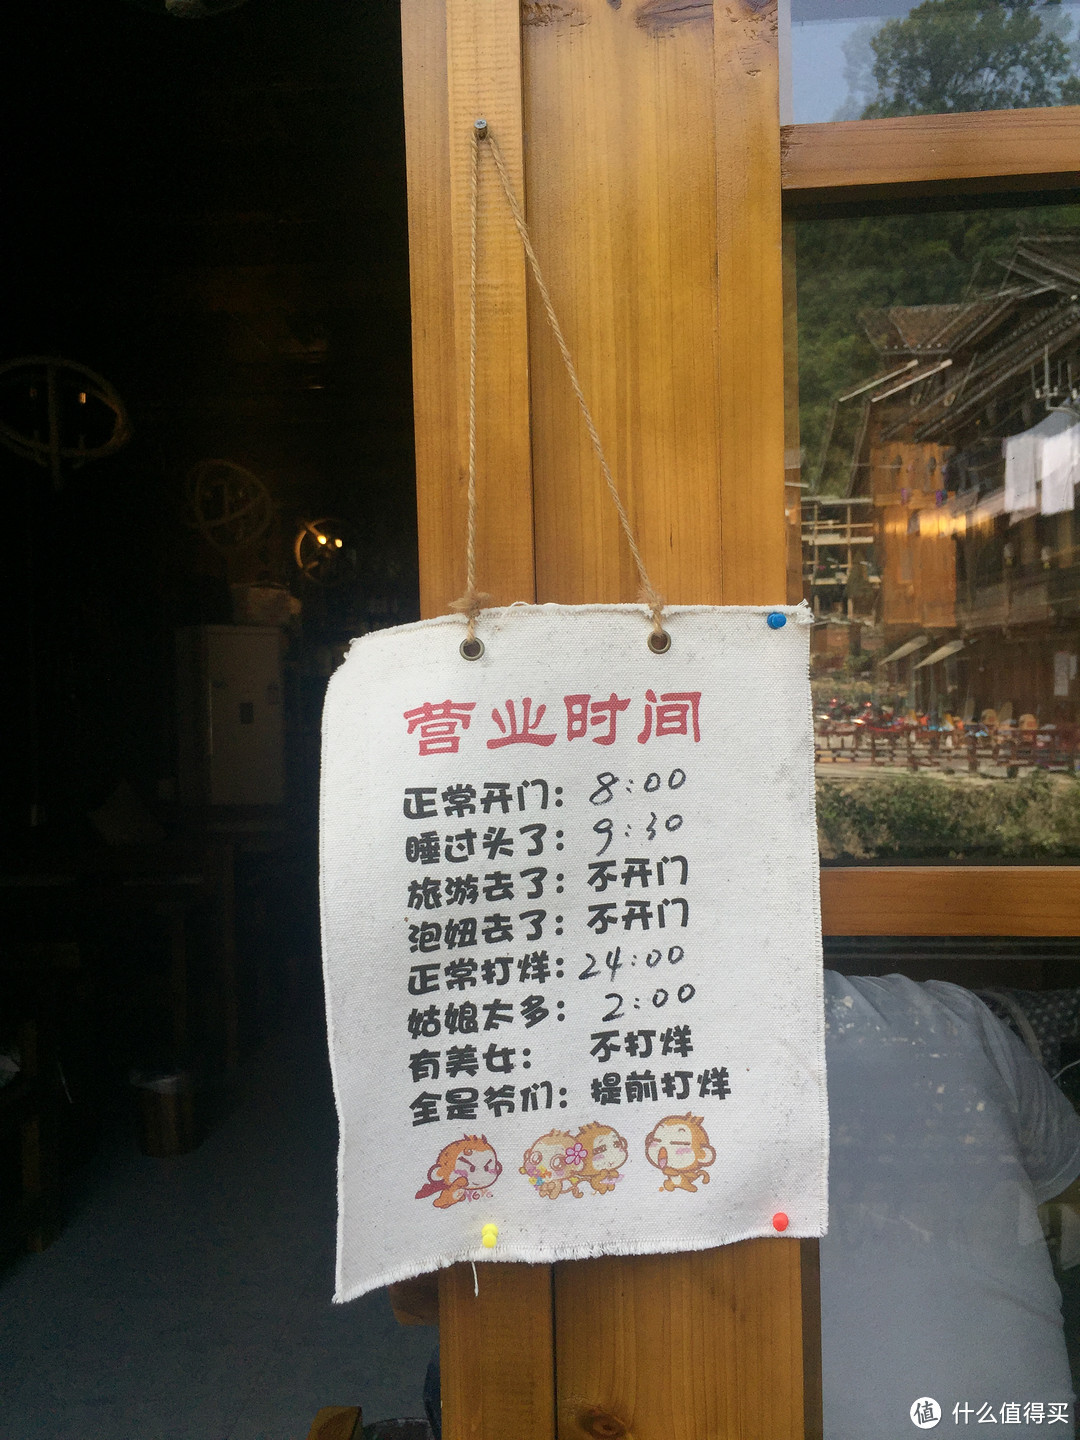 营业时间
正常开门：8:00
睡过头了：9:30
旅游去了：不开门
泡妞去了：不开门
正常打烊：24:00
姑娘太多：2:00
有美女：不打烊
全是爷们：提前打烊
值 什么值得买